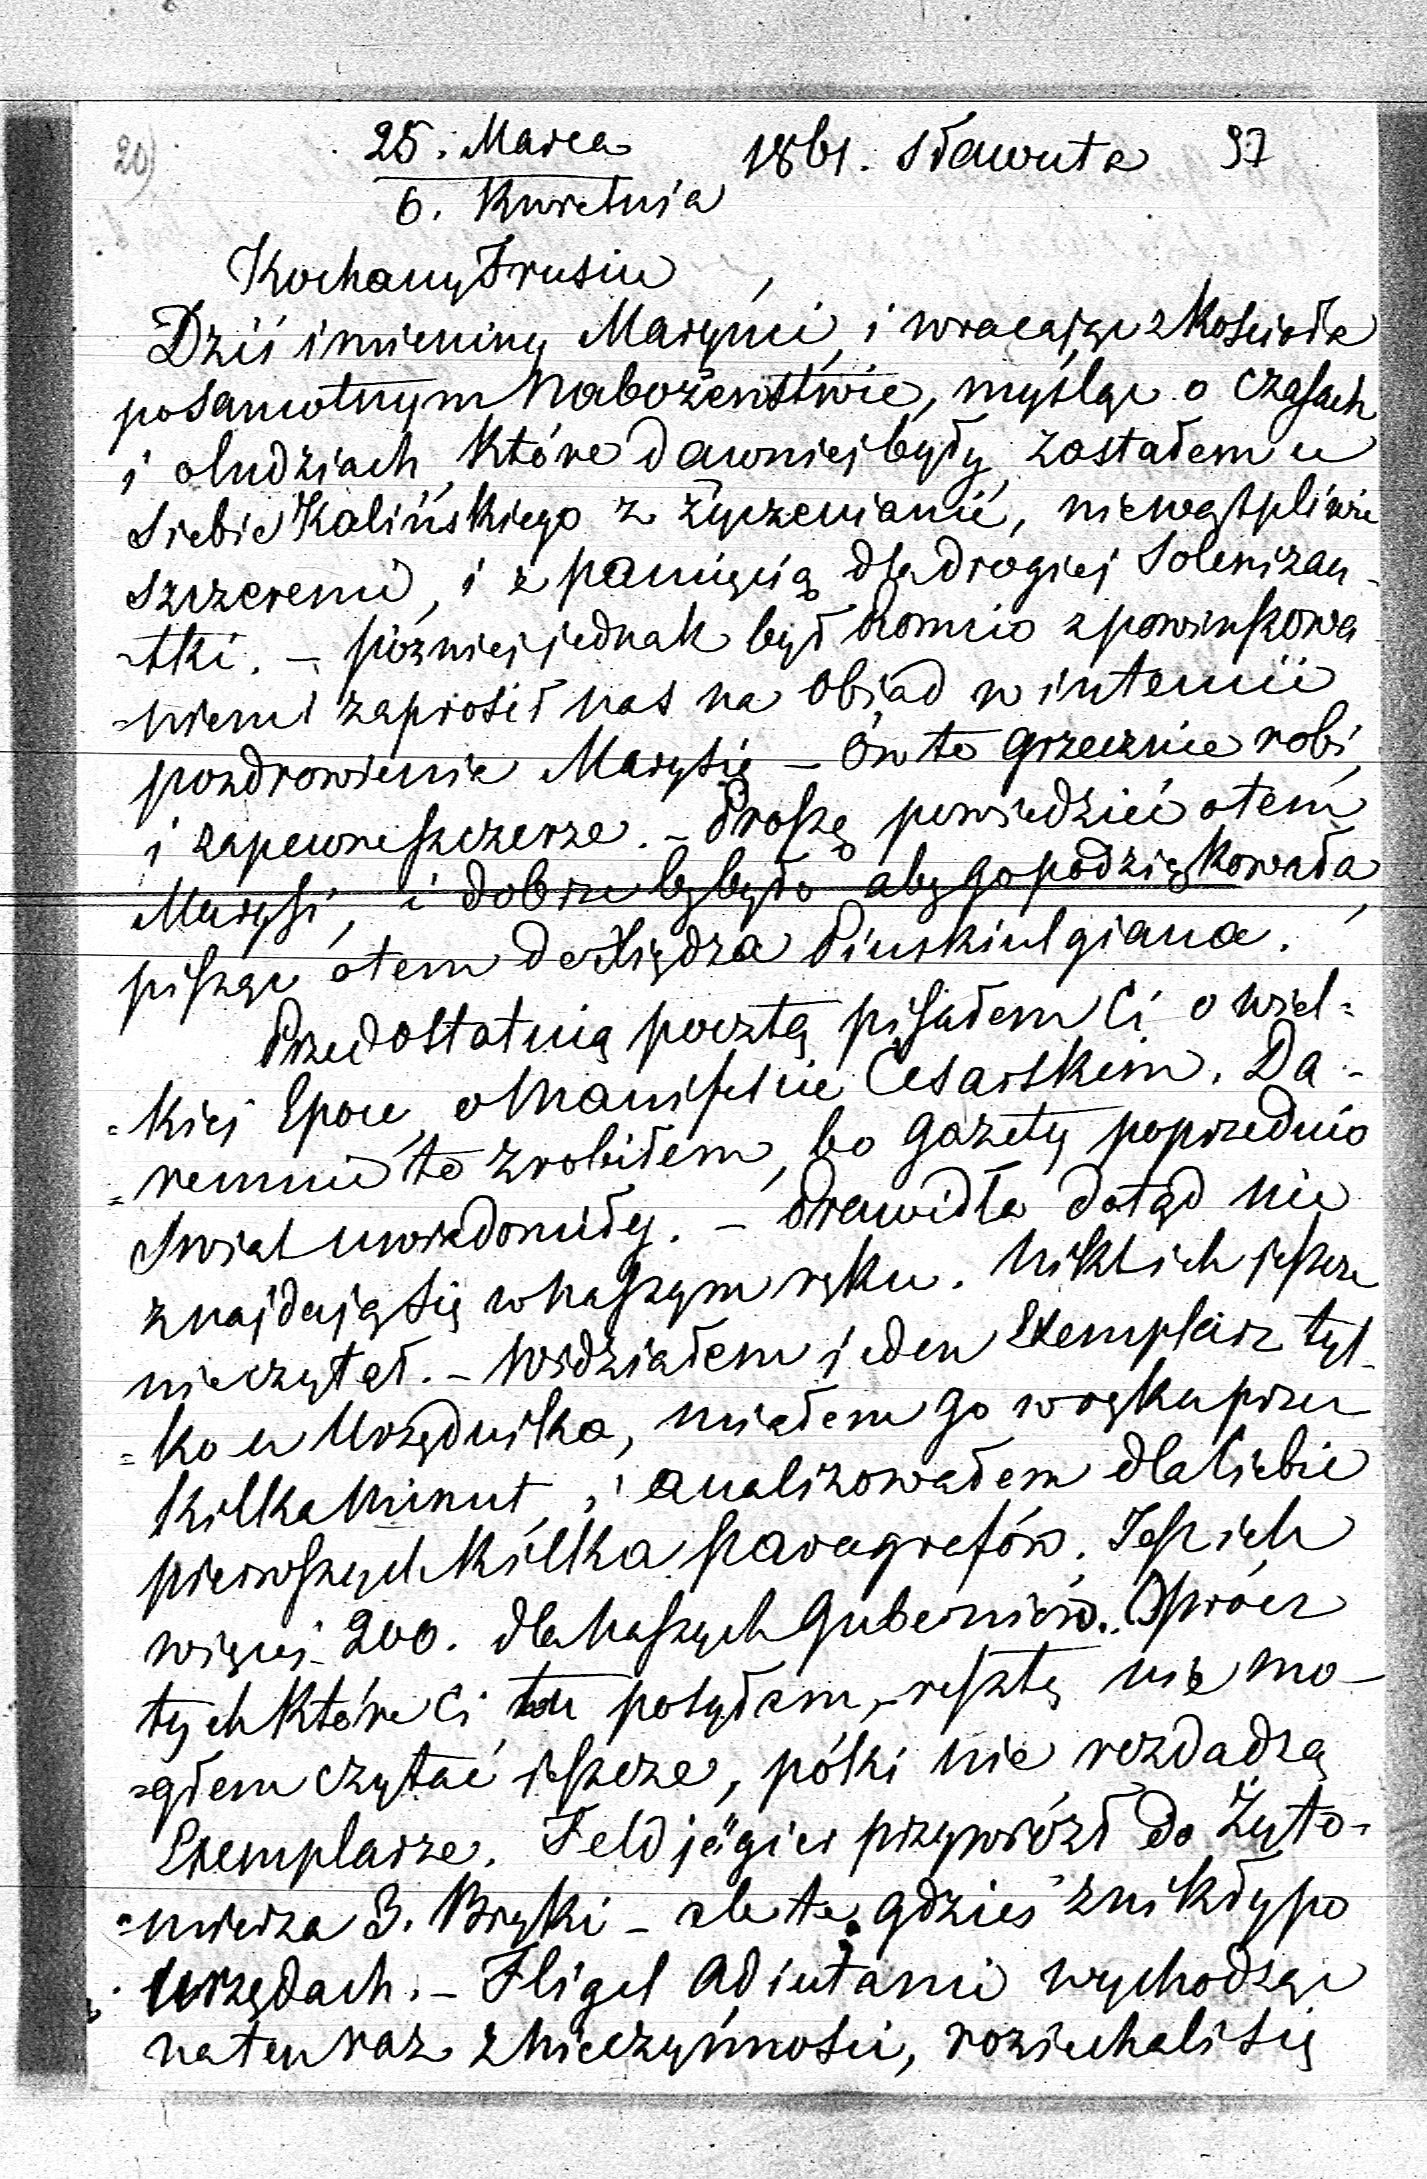 20)
25. Marca 1861. Sławuta 97
6. Kwietnia
Kochany Trusiu,
Dziś imieniny Maryni, i wracając z Kościoła
po samotnym Nabożeństwie, myśląc o czasach
i o ludziach, które dawniej były, zostałem u
siebie Kalińskiego z życzeniami, niewątpliwie
szczeremi, i z pamięcią dla drogiej Solenizan-
-tki. – później jednak był z powinszowa
=niem i zaprosił nas na Obiad w intencii
pozdrowienia Marysię – On to grzecznie robi,
i zapewne szczerze. – Proszę powiedzieć o tem
Marysi, i dobrze by było aby go podziękowała,
pisząc o tem do Xiędza.
Przedostatnią pocztą pisałem Ci o wiel=
=kiej Epoce, o Manifeście Cesarskim. Da-
=remnie to zrobiłem, bo gazety poprzednio
Swiat uwiadomiły. – Prawidła dotąd nie
znajdują się w naszym ręku. Nikt ich jeszcze
nie czytał. – Widziałem jeden Exemplarz tyl-
=ko u Urzędnika, miałem go w ręku przez
kilka Minut, i analizowałem dla Ciebie
pierwszych kilka paragrafów. Jest ich
więcej 200. dla naszych Guberniów. Oprócz
tych które Ci tu posyłam, resztę nie mo-
=głem czytać jeszcze, póki nie rozdadzą
Exemplarze. Feldjägier przywiózł do Żyto-
=mierza 3. Bryki – ale te gdzieś znikły po
Urzędach. – Fligel Adiutanci wychodząc
na ten raz z nieczynności, roziechali się